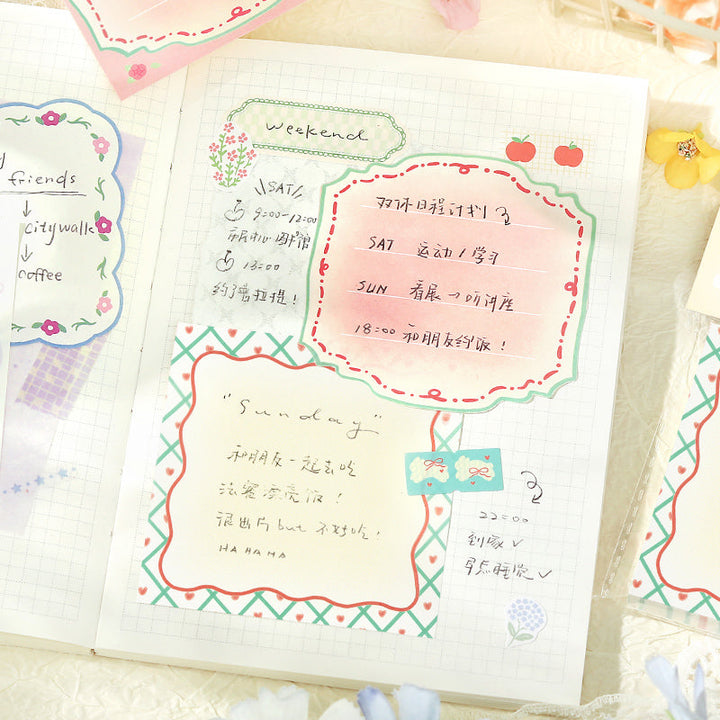 friends
↓
citywalk
↓
coffee
weekend
SAT
9:00-12:00
市民中心图书馆
13:00
约了普拉提!
双休日程计划
SAT 运动/学习
SUN 看展→听讲座
18:00 和朋友约饭!
"Sunday"
和朋友一起去吃
法餐漂亮饭!
很出片but不好吃!
HA HA HA
22:00
到家✓
早点睡觉✓